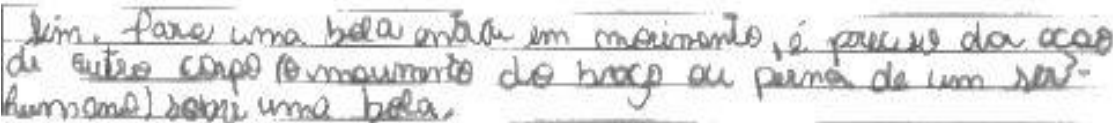 Sim. Para uma bola entrar em movimento, é preciso da acao
de outro corpo (o movimento do braço ou perna de um ser-
humano) sobre uma bola.